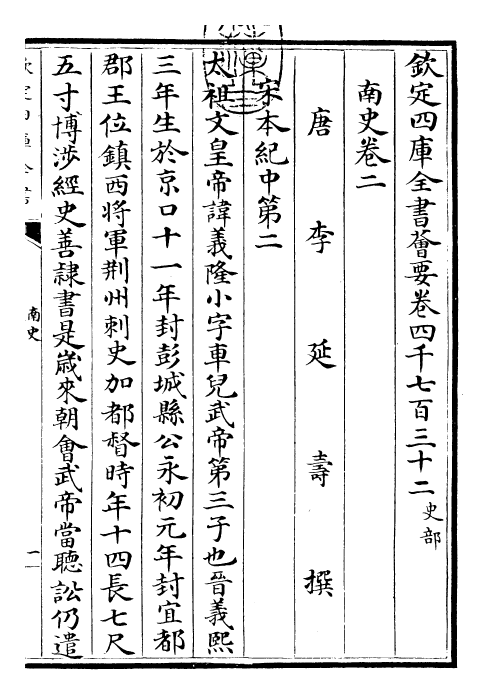 欽定四庫全書薈要卷四千七百三十二 史部
南史卷二
唐 李 延 壽 撰
宋本紀中第二
太祖文皇帝諱義隆小字車兒武帝第三子也晉義熙
三年生於京口十一年封彭城縣公永初元年封宜都
郡王位鎮西將軍荆州刺史加都督時年十四長七尺
五寸博涉經史善隷書是嵗來朝會武帝當聽訟仍遣
南史
一